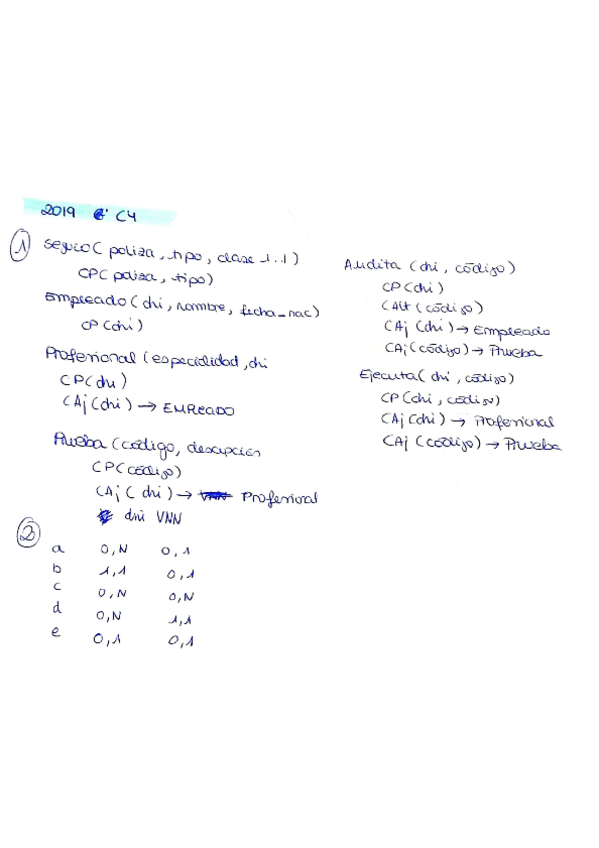 2019 C4
① Seguro ( poliza, tipo, clase 1..1 )
CP( poliza, tipo)
Empleado ( dni, nombre, fecha_nac)
CP (dni)
Profesional ( especialidad, dni
CP(dni)
CAj (dni) → EMPLEADO
Prueba (código, descripción
CP(código)
CAj ( dni ) → Profesional
dni VNN
Audita ( dni, código )
CP (dni )
CAlt ( código )
CAj (dni) → Empleado
CAj (código) → Prueba
Ejecuta( dni , código)
CP (dni, código)
CAj (dni) → Profesional
CAj (código) → Prueba
②
a 0,N 0,1
b 1,1 0,1
c 0,N 0,N
d 0,N 1,1
e 0,1 0,1